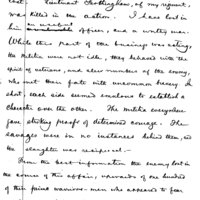 lost. Lieutenant Trotbridges, of my regiment,
was killed in the action. I have lost in
him an excellent officer, and a worthy man.
While this part of the business was acting,
the militia were not idle, they behaved with the
spirit of veterans, and slew numbers of the enemy,
who met their fate with uncommon bravery. In
short, each side seemed emulous to establish a
character over the other. The militia everywhere
gave striking proofs of determined courage. The
savages were in no instances behind them, and
the slaughter was reciprocal.—
From the best information the enemy lost in
the course of this affair, upwards of one hundred
of their prime warriors—men who appeared to fear